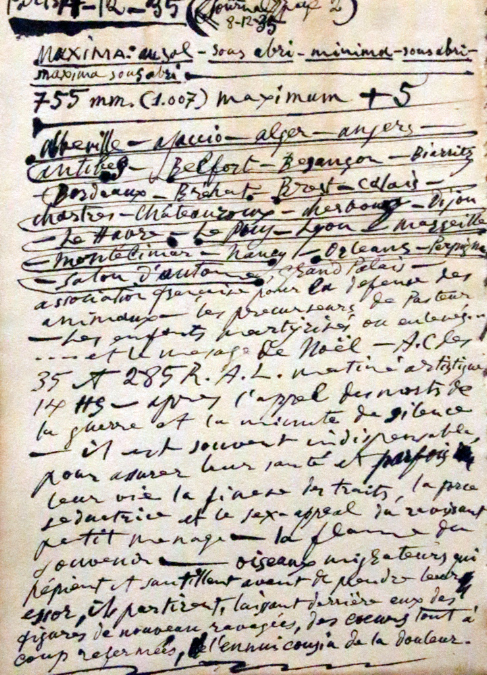 Paris 4-12-35 (Journal page 2)
8-12-35
MAXIMA: au sol - sous abri - minima - sous abri -
maxima sous abri
755 mm. (1.007) maximum + 5
abbeville - ajaccio - alger - angers -
antibes - Belfort - Besançon - Biarritz
Bordeaux - Bréhat - Brest - Calais -
chartres - Châteauroux - cherbourg - Dijon
- Le Havre - Le Puy - Lyon - Marseille
- Montélimar - Nancy - Orléans - Perpignan
- Salon d'automne, Grand Palais -
association française pour la défense des
animaux - les précurseurs de Pasteur
- Les enfants martyrisés ou enlevés...
.... et le message de Noël - A.C. les
35 et 285 R.A.L. matiné artistique
14 H9 - après l'appel des morts de
la guerre et la minute de silence
- il est souvent indispensable,
pour assurer leur santé et parfois
leur vie la finesse des traits, la
séductrice et le sex-appeal du ravissant
petit ménage - la flamme du
souvenir - oiseaux migrateurs qui
pépient et sautillent avant de prendre leur
essor, ils partirent, laissant derrière eux des
figures de nouveau ravagées, des coeurs tout à
coup refermés, l'ennui cousin de la douleur.